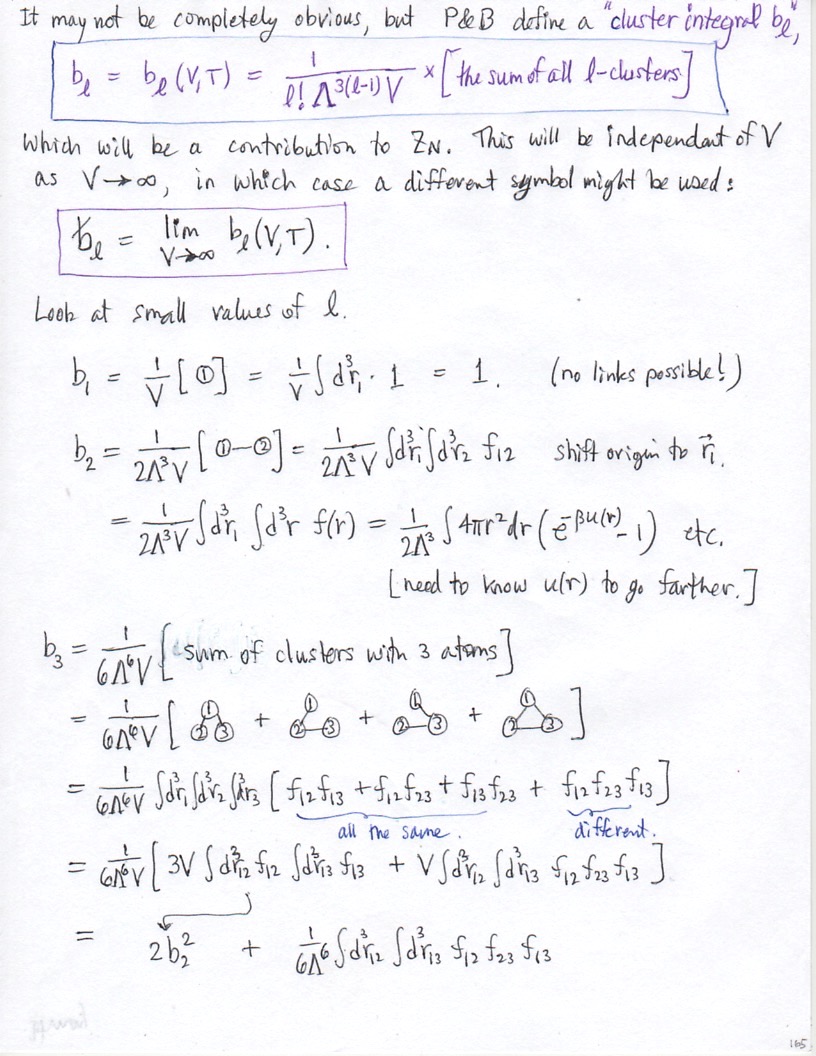 It may not be completely obvious, but P&B define a "cluster integral bℓ",
bℓ = bℓ(V,T) = 1/(ℓ! Λ^{3(ℓ-1)} V) × [the sum of all ℓ-clusters]
Which will be a contribution to Z_N. This will be independant of V
as V→∞, in which case a different symbol might be used:
ƀℓ = lim_{V→∞} bℓ(V,T).
Look at small values of ℓ.
b₁ = 1/V [①] = 1/V ∫d³r₁ · 1 = 1. (no links possible!)
b₂ = 1/(2Λ³V) [①–②] = 1/(2Λ³V) ∫d³r₁ ∫d³r₂ f₁₂ shift origin to r⃗₁.
= 1/(2Λ³V) ∫d³r₁ ∫d³r f(r) = 1/(2Λ³) ∫4πr²dr (e^{-βu(r)} - 1) etc.
[need to know u(r) to go farther.]
b₃ = 1/(6Λ⁶V) [sum of clusters with 3 atoms]
= 1/(6Λ⁶V) [ ① ② ③ + ① ② ③ + ① ② ③ + ① ② ③ ]
= 1/(6Λ⁶V) ∫d³r₁ ∫d³r₂ ∫d³r₃ [f₁₂f₁₃ + f₁₂f₂₃ + f₁₃f₂₃ + f₁₂f₂₃f₁₃]
all the same. different.
= 1/(6Λ⁶V) [3V ∫d³r₁₂ f₁₂ ∫d³r₁₃ f₁₃ + V∫d³r₁₂ ∫d³r₁₃ f₁₂f₂₃f₁₃]
= 2b₂² + 1/(6Λ⁶) ∫d³r₁₂ ∫d³r₁₃ f₁₂ f₂₃ f₁₃
165